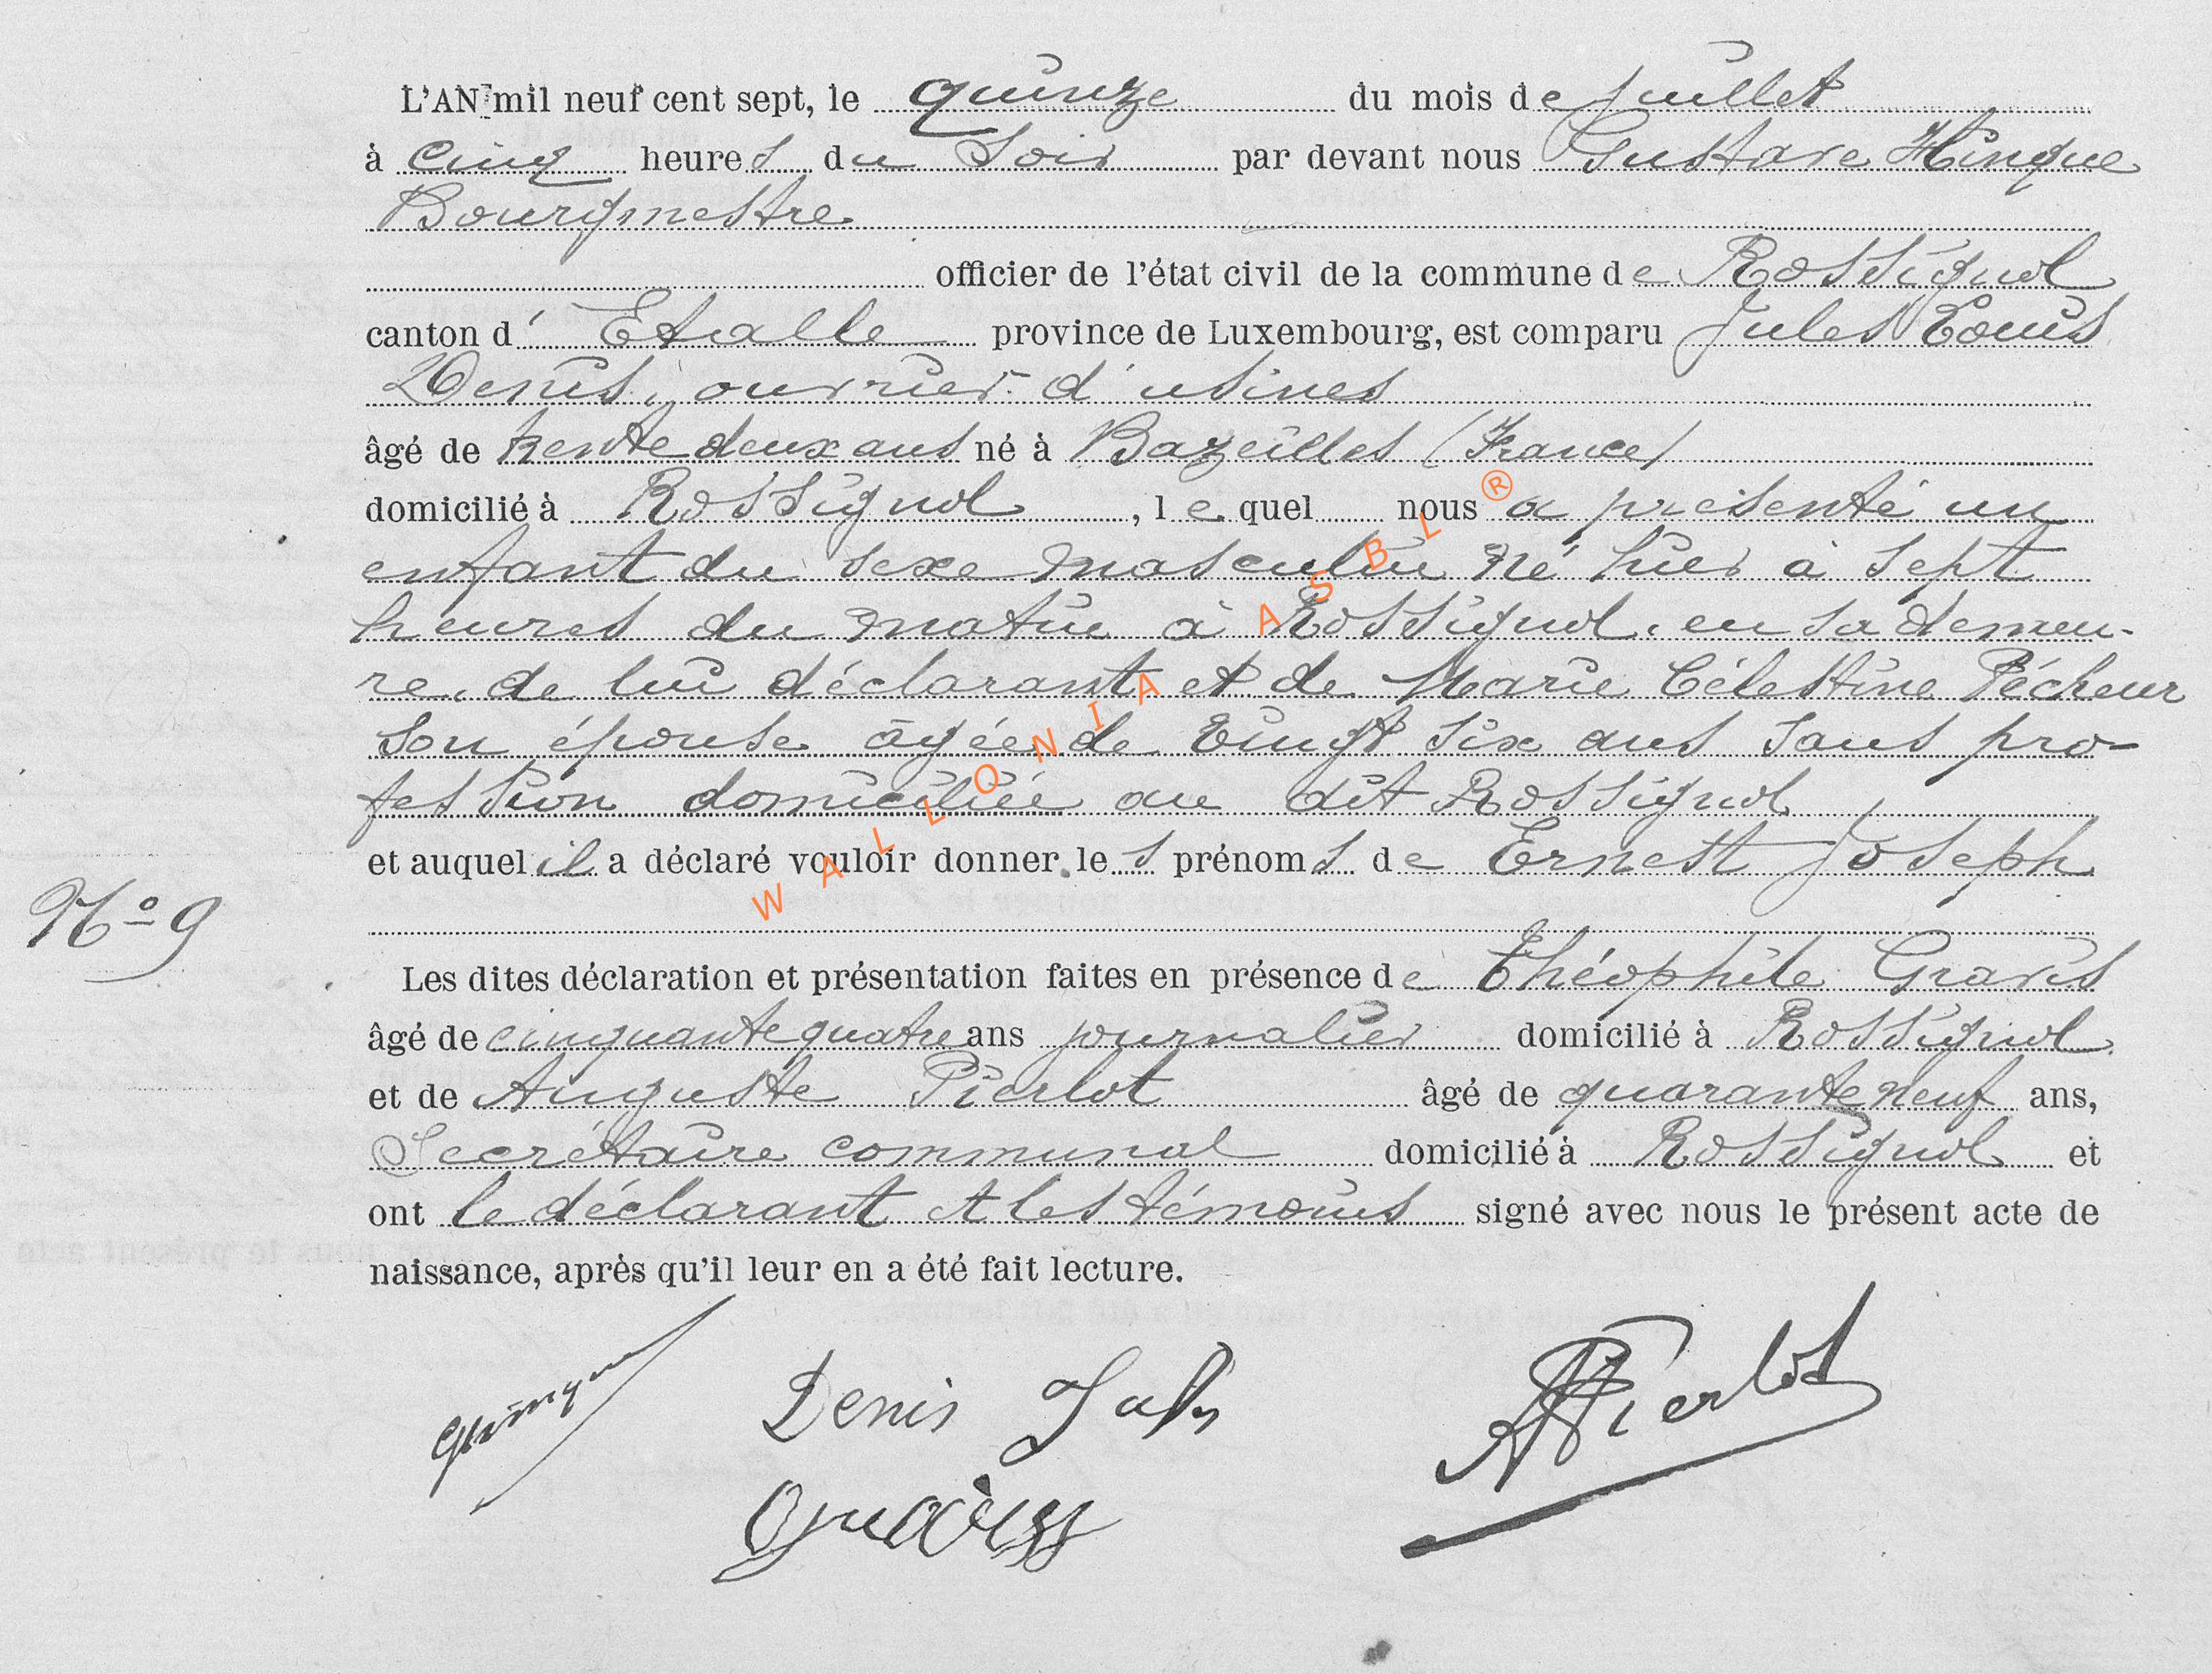 L'AN mil neuf cent sept, le quinze du mois de juillet
à cinq heures du soir par devant nous Gustave Hinque
Bourgmestre
officier de l'état civil de la commune de Rossignol
canton d' Etalle province de Luxembourg, est comparu Jules Louis
Denis, ouvrier d'usines
âgé de trente deux ans né à Bazeilles (France)
domicilié à Rossignol, lequel nous a présenté un
enfant du sexe masculin né hier à sept
heures du matin à Rossignol, en sa demeu-
re, de lui déclarant et de Marie Célestine Pécheur
son épouse âgée de vingt six ans sans pro-
fession domiciliée au dit Rossignol
et auquel il a déclaré vouloir donner les prénoms de Ernest Joseph
N° 9
Les dites déclaration et présentation faites en présence de Théophile Gravis
âgé de cinquante quatre ans journalier domicilié à Rossignol
et de Auguste Pierlot âgé de quarante neuf ans,
Secrétaire communal domicilié à Rossignol et
ont le déclarant et les témoins signé avec nous le présent acte de
naissance, après qu'il leur en a été fait lecture.
GHinque Denis Jules APierlot
WALLONIA ASBL ®